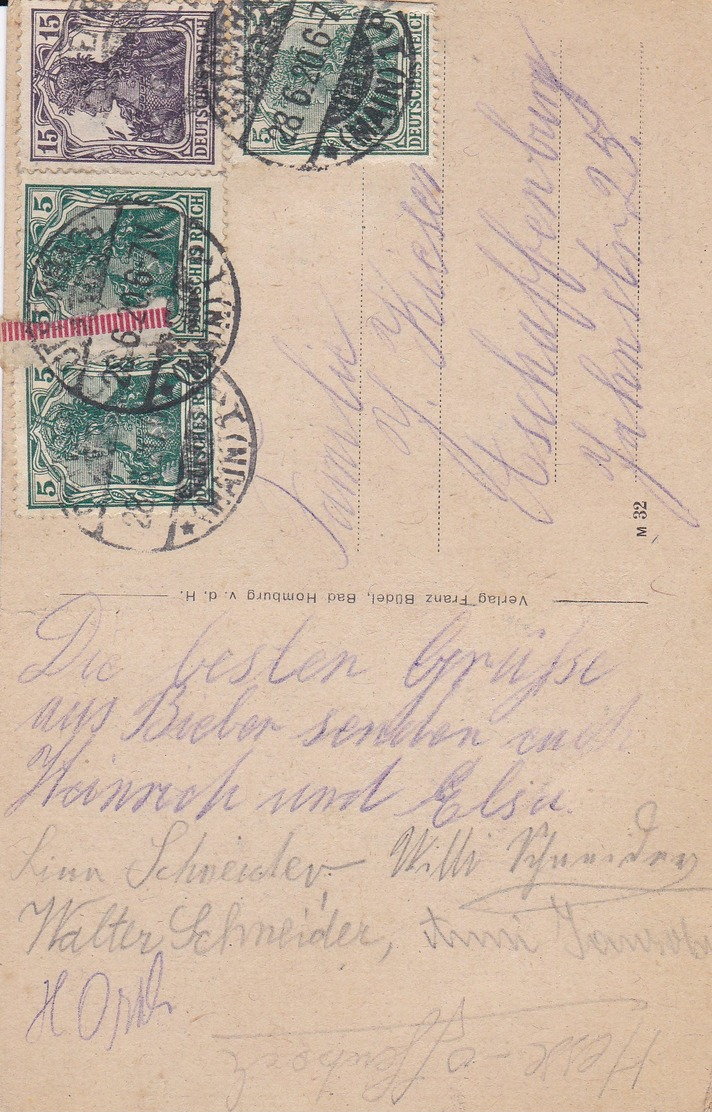 15 15
DEUTSCHES REICH
5
DEUTSCHES REICH
28.6.20.6-7
(MAIN) 1
5
DEUTSCHES REICH
28.6.20.6-7
(MAIN) 1
5 5
DEUTSCHES REICH
(MAIN) 1
Familie
Aschaffenburg
Jahnstr. 25.
M 32
Verlag Franz Büdel, Bad Homburg v. d. H.
Die besten Grüsse
aus Bieber senden euch
Heinrich und Elsa
Lina Schneider Willi Schneider
Walter Schneider, Anni
H